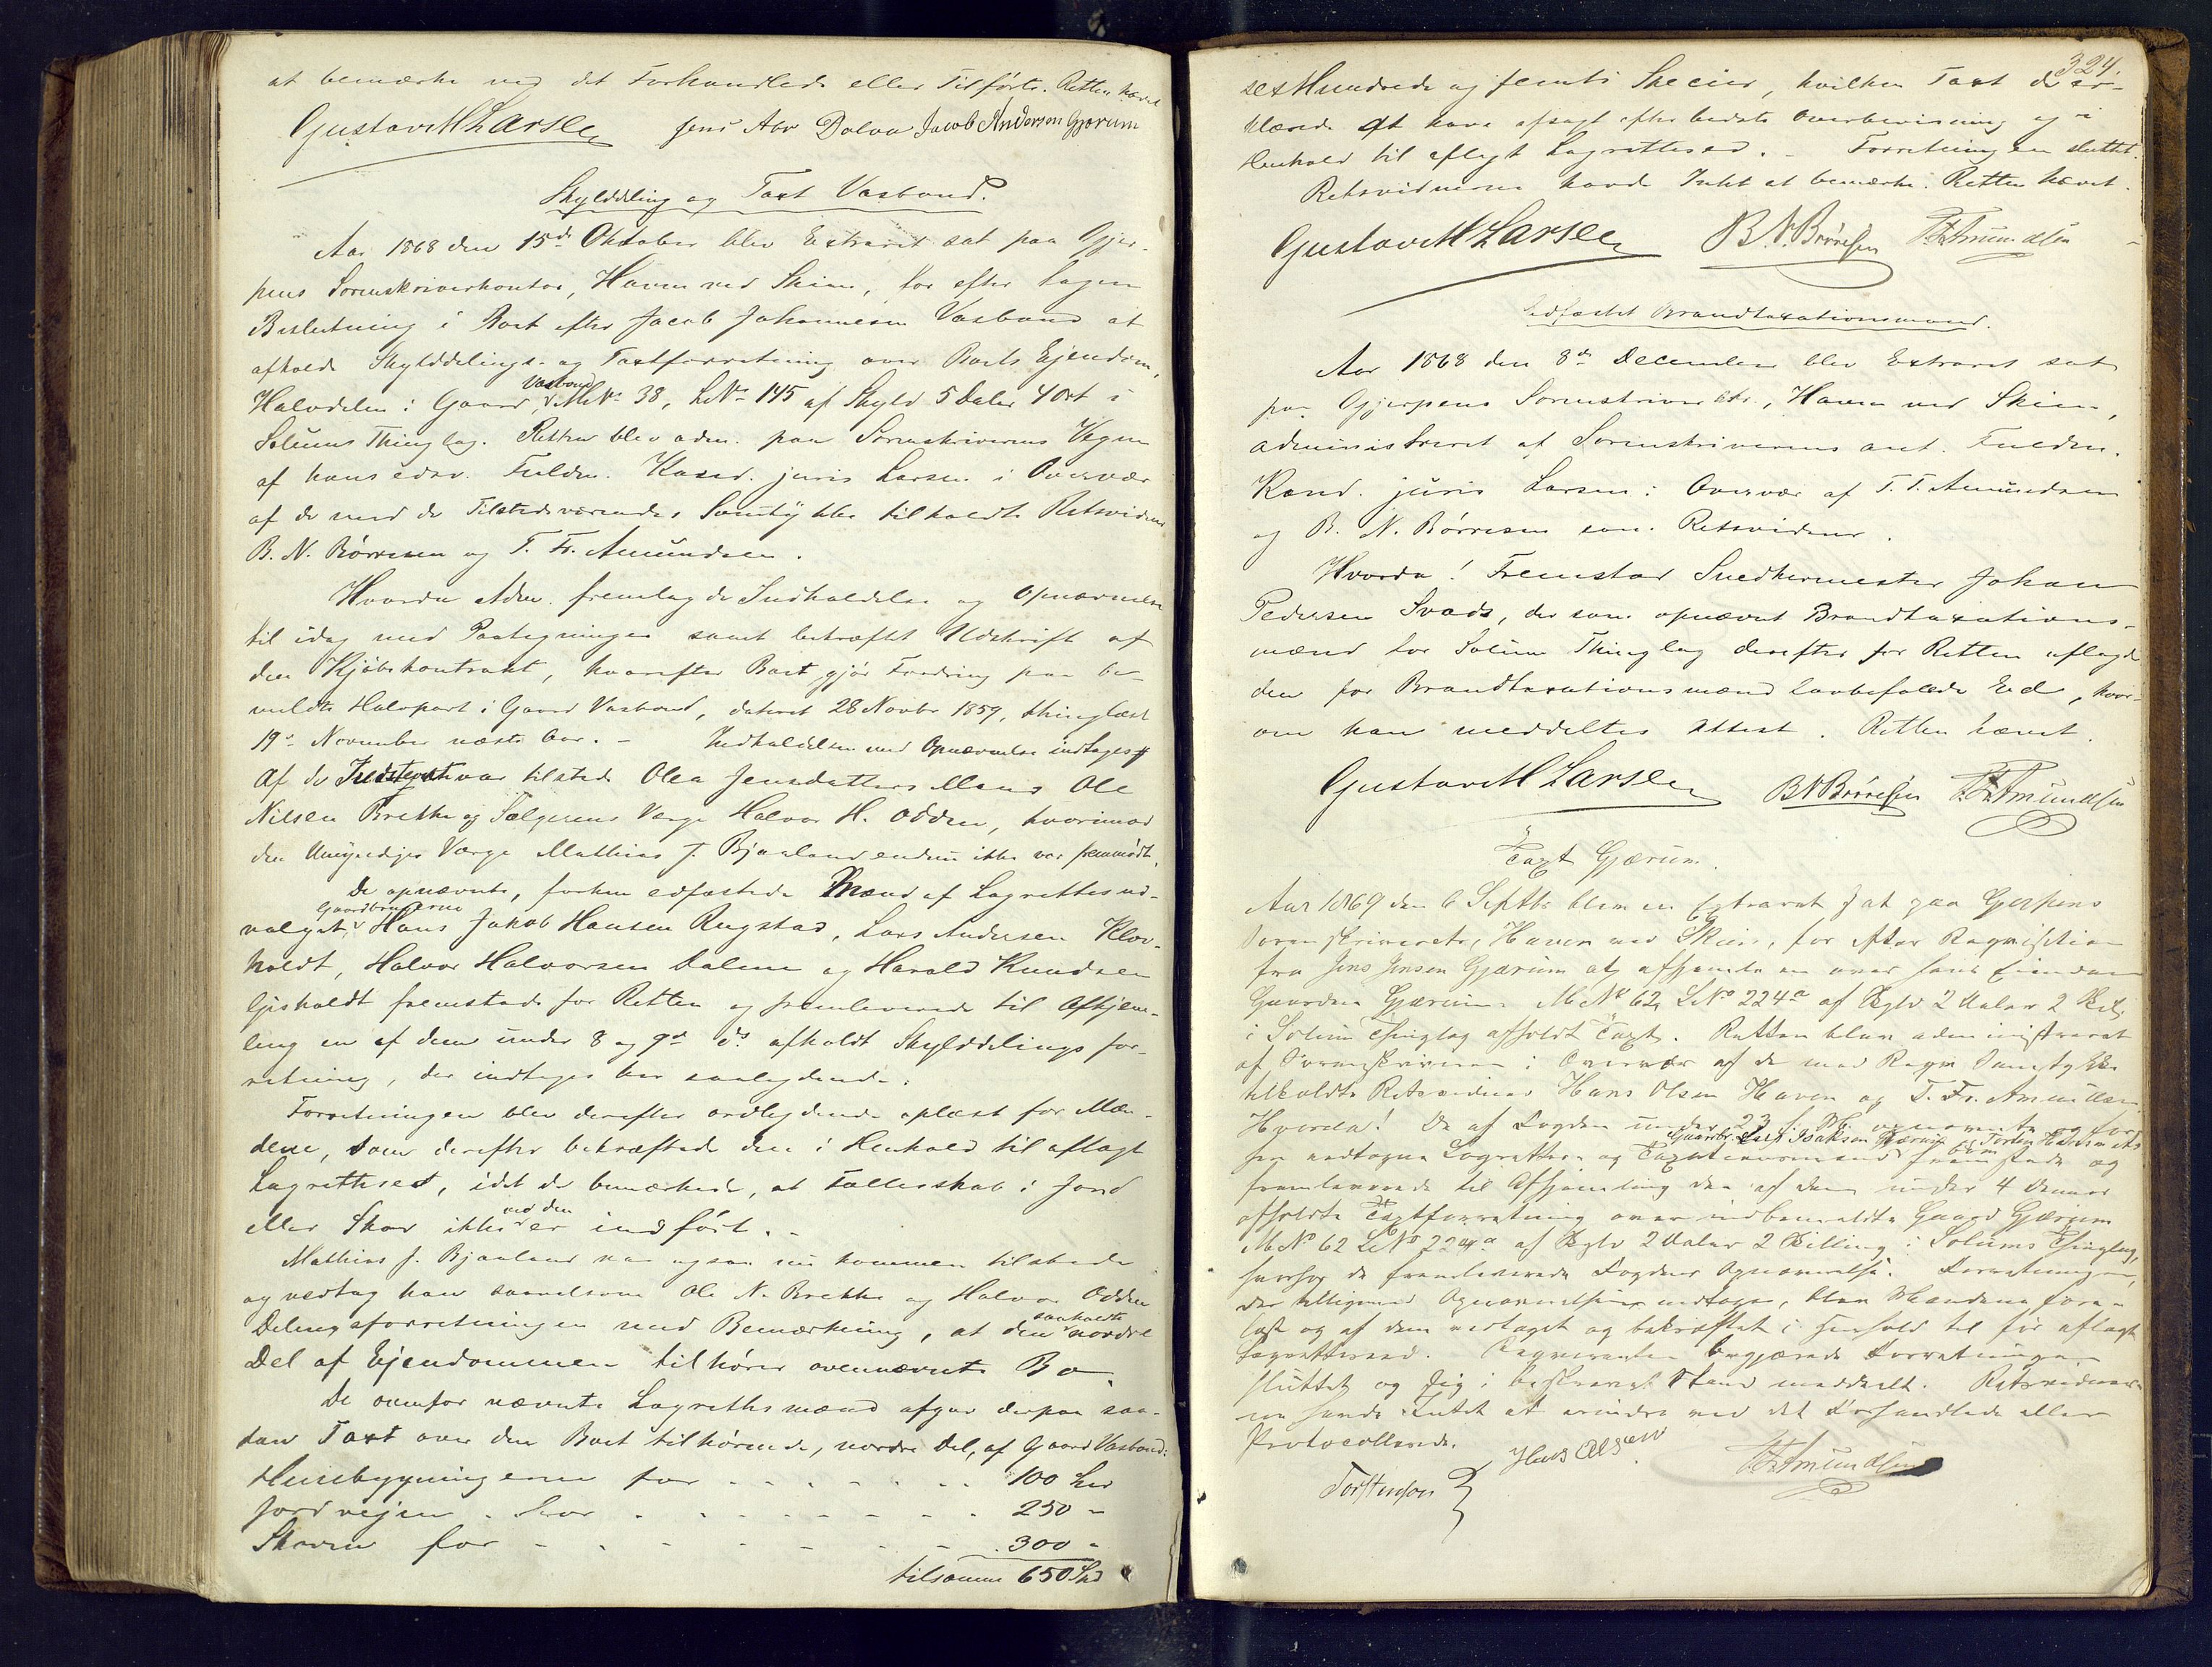 at bemærke ved det Forhandlede eller Tilførte. Retten hævet
Gustav M Larsen Jens Abr Dolva Jacob Anderson Gjerum
Skylddeling og Taxt Vasbond.
Aar 1868 den 15de Oktober blev Extraret sat paa Gjer-
pens Sorenskriverkontor, Haven ved Skien, for efter tagen
Beslutning i Boet efter Jacob Johannesen Vasbond at
afholde Skylddelings- og Taxtforretning over Boets Ejendom,
Halvdelen i Gaard, Vasbond MNo 38, LNo 145 af Skyld 5 Daler 4 Ort i
Solums Thinglag. Retten blev adm. paa Sorenskriverens Vegne
af hans edsv. Fuldm. Kand. juris Larsen i Overvær
af de med de Tilstedeværendes Samtykke tilkaldte Retsvidner
B. N. Børresen og T. Fr. Amundsen.
Hvorda Adm. fremlagde Indkaldelse og Opnævnelse
til idag med Paategninger samt bekræftet Udskrift af
den Kjøbekontrakt, hvorefter Boet gjør Fordring paa be-
meldte Halvpart i Gaard Vasbond, dateret 28 Novbr 1859, thinglæst
19de November næste Aar. – Indkaldelsen med Opnævnelse indtages
Af de var tilstede Olea Jensdatters Mand Ole
Nilsen Brekke og Sælgerens Værge Halvor H. Odden, hvorimod
den Umyndiges Værge Mathias J. Bjaaland endnu ikke var fremmødt.
De opnævnte, forhen edfæstede Mænd af Lagrettesud-
valget Gaardbrugerne Hans Jakob Hansen Rugstad, Lars Andersen Klov-
holdt, Halvor Halvorsen Dalene og Harald Knudsen
Gisholdt fremstod for Retten og fremleverede til Afhjem-
ling en af dem under 8 og 9de ds. afholdt Skylddelingsfor-
retning, der indtages her saalydende:
Forretningen blev derefter ordlydende oplæst for Mæn-
dene, som derefter bekræftede den i Henhold til aflagt
Lagretteed, idet de bemærkede, at Fælledsskab i Jord
eller Skov ikke ved den er indført. –
Mathias J. Bjaaland var ogsaa nu kommen tilstede
og vedtog han saavelsom Ole N. Brekke og Halvor Odden
Delingsforretningen med Bemærkning, at den saakaldte nordre
Del af Ejendommen tilhører ovennævnte Bo.
De ovenfor nævnte Lagrettesmænd afgav derpaa saa-
dan Taxt over den Boet tilhørende, nordre Del, af Gaard Vasbond:
Husebygningerne for . . . . . . . 100 Spd
Jordvejen . for . . . . . . . 250 –
Skoven for – – – – – – 300 –
tilsammen 650 Spd
324.
sexHundrede og femti Species, hvilken Taxt de er-
klærede at have afsagt efter bedste Overbevisning og i
Henhold til aflagt Lagretteed. – Forretningen sluttet.
Retsvidnerne havde Intet at bemærke. Retten hævet.
Gustav M Larsen B N Børresen T Fr Amundsen
Edfæstet Brandtaxationsmand.
Aar 1868 den 8de December blev Extraret sat
paa Gjerpens Sorenskriverktr., Haven ved Skien,
administreret af Sorenskriverens aut. Fuldm.
Kand. juris Larsen i Overvær af T. F. Amundsen
og B. N. Børresen som Retsvidner.
Hvorda! Fremstod Snedkermester Johan
Pedersen Svads, der som opnævnt Brandtaxations-
mand for Solum Thinglag derefter for Retten aflagde
den for Brandtaxationsmænd lovbefalede Ed, hvor-
om han meddeltes Attest. Retten hævet.
Gustav M Larsen B N Børresen T Fr Amundsen
Taxt Gjærum.
Aar 1869 den 6 Septbr blev en Extraret sat paa Gerpens
Sorenskriverctr, Haven ved Skien, for efter Reqvisition
fra Jens Jensen Gjærum at afhjemle en over hans Eiendom
Gaarden Gjærum MNo 62, LNo 224a af Skyld 2 Daler 2 Skil.
i Solum Thinglag afholdt Taxt. Retten blev administreret
af Sorenskriveren i Overvær af de med Reqv. Samtykke
tilkaldte Retsvidner Hans Olsen Haven og T. Fr. Amundsen.
Hvorda! De af Fogden under 23 f. M. opnævnte og for-
hen Lagrettes- og Gaardbr. Lars Isaksen Bærum og Torsten Halvorsen fremstode og
fremleverede til Afhjemling den af dem under 4 Dennes
afholdte Taxtforretning over indbemeldte Gaard Gjærum
MNo 62 LNo 224a af Skyld 2 Daler 2 Skilling i Solums Thinglag,
hvorhos de fremleverede Fogdens Opnævnelse. Forretningen,
der tilligemed Opnævnelsen indtages, blev Mændene fore-
læst og af dem vedtaget og bekræftet i Henhold til før aflagt
Lagretteed. Reqvirenten begjærede Forretningen
sluttet og sig i beskreven Stand meddeelt. Retsvidner-
ne havde Intet at erindre ved det Forhandlede eller
Protocollerede.
Torstenson Hans Olsen T Fr Amundsen